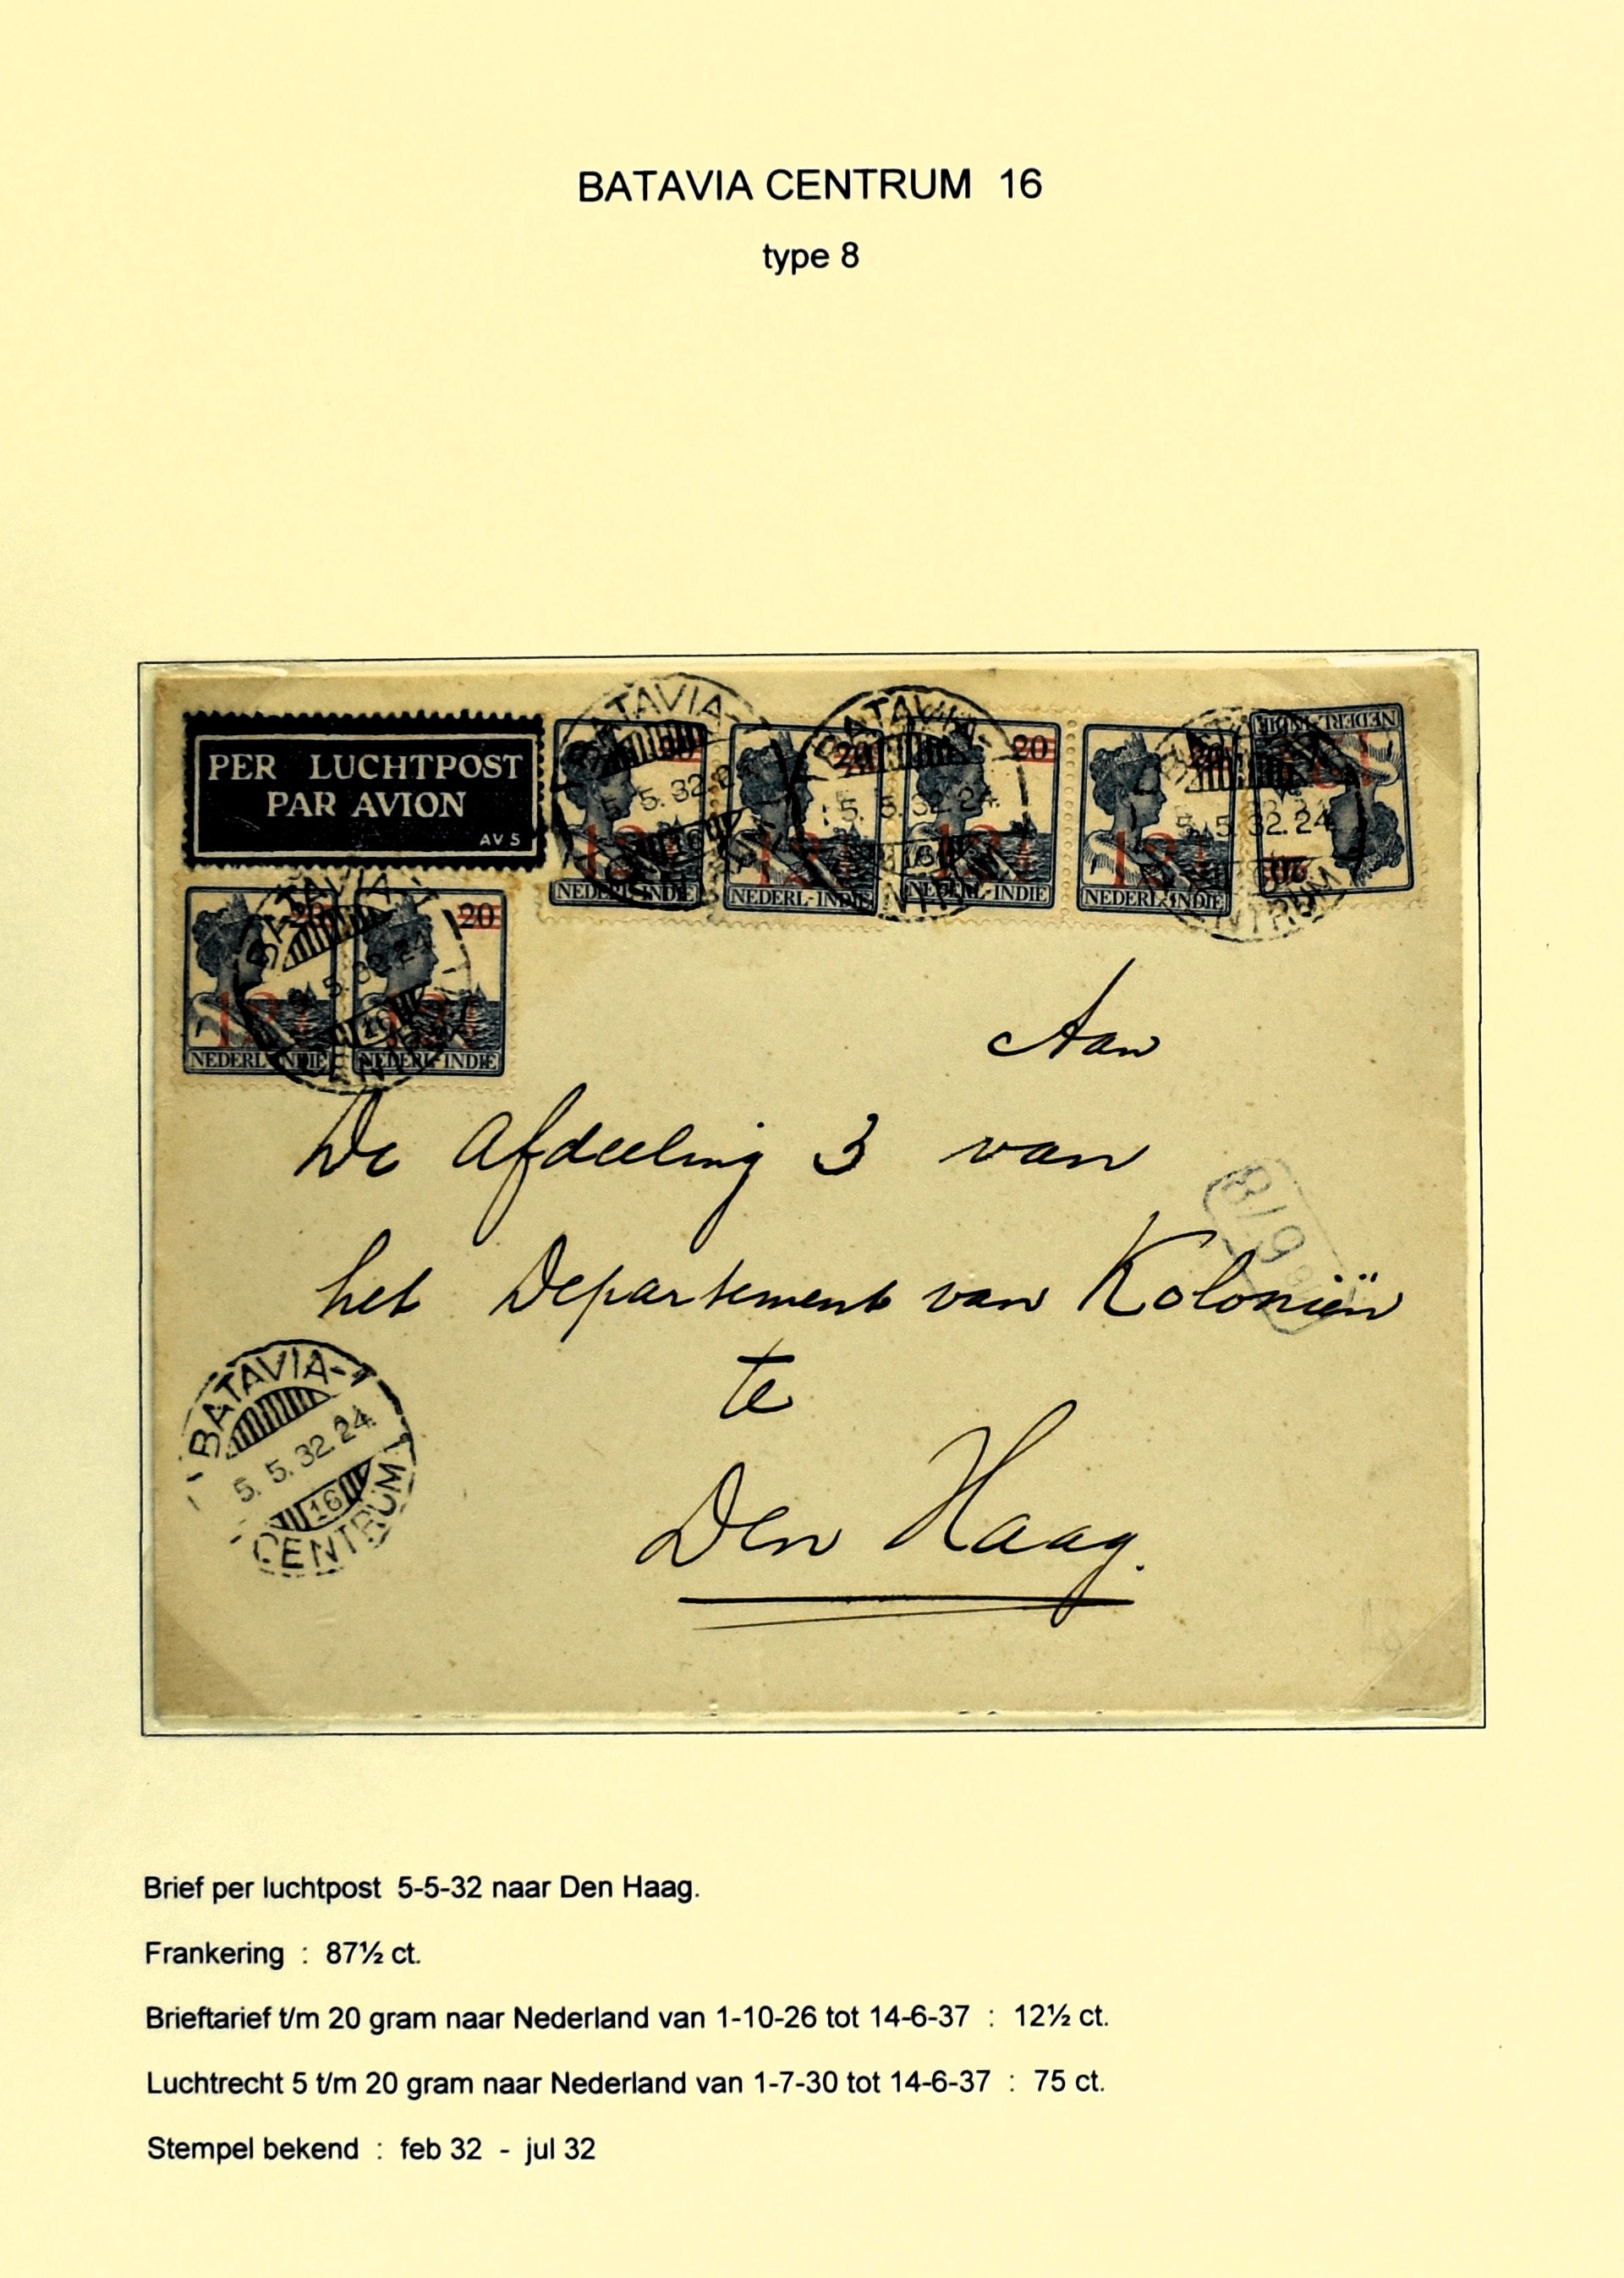 BATAVIA CENTRUM 16
type 8
PER LUCHTPOST
PAR AVION
AV 5
BATAVIA-
5. 5. 32.
BATAVIA-
5. 5. 32. 24.
16
5. 5. 32. 24
NTRUM
20
20
20
NEDERL-INDIE
NEDERL-INDIE
NEDERL-INDIE
NEDERL-INDIE
NEDERL-INDIE
BATAVIA
5. 32. 24
16
CENTRUM
20
20
12½
12½
NEDERL-INDIE
NEDERL-INDIE
Aan
De Afdeeling 3 van
819
het Departement van Koloniën
te
Den Haag.
BATAVIA-
5. 5. 32. 24.
16
CENTRUM
Brief per luchtpost 5-5-32 naar Den Haag.
Frankering : 87½ ct.
Brieftarief t/m 20 gram naar Nederland van 1-10-26 tot 14-6-37 : 12½ ct.
Luchtrecht 5 t/m 20 gram naar Nederland van 1-7-30 tot 14-6-37 : 75 ct.
Stempel bekend : feb 32 - jul 32